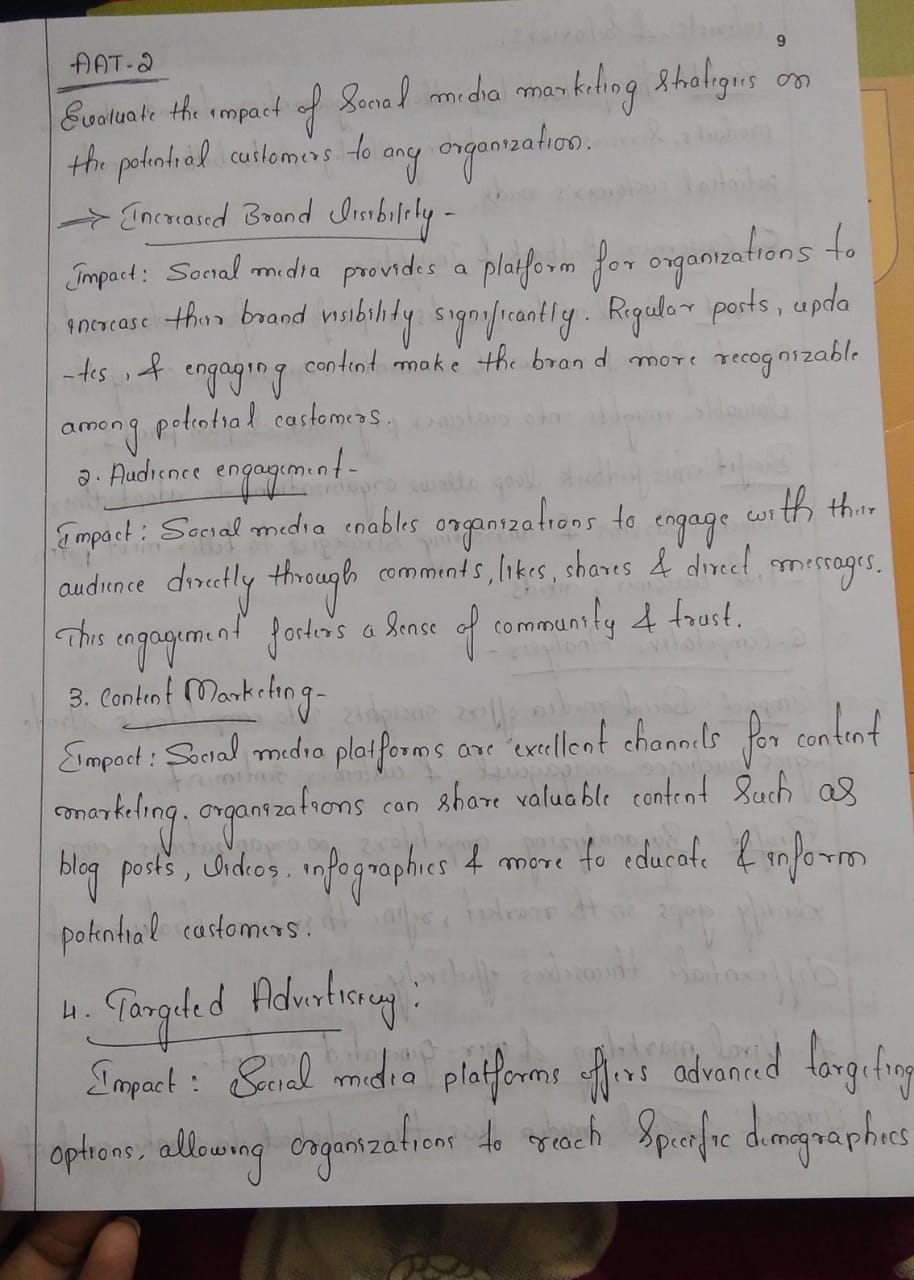 9
AAT-2
Evaluate the impact of Social media marketing Strategies on
the potential customers to any organization.
→ Increased Brand Visibility -
Impact: Social media provides a platform for organizations to
increase their brand visibility significantly. Regular posts, upda
-tes, & engaging content make the brand more recognizable
among potential castomers.
2. Audience engagement -
Impact: Social media enables organizations to engage with their
audience directly through comments, likes, shares & direct messages.
This engagement fosters a Sense of community & trust.
3. Content Marketing -
Impact: Social media platforms are excellent channels for content
marketing. organizations can share valuable content Such as
blog posts, Videos, infographics & more to educate & inform
potential castomers.
4. Targeted Advertising:
Impact: Social media platforms offers advanced targeting
options, allowing organizations to reach Specific demographics